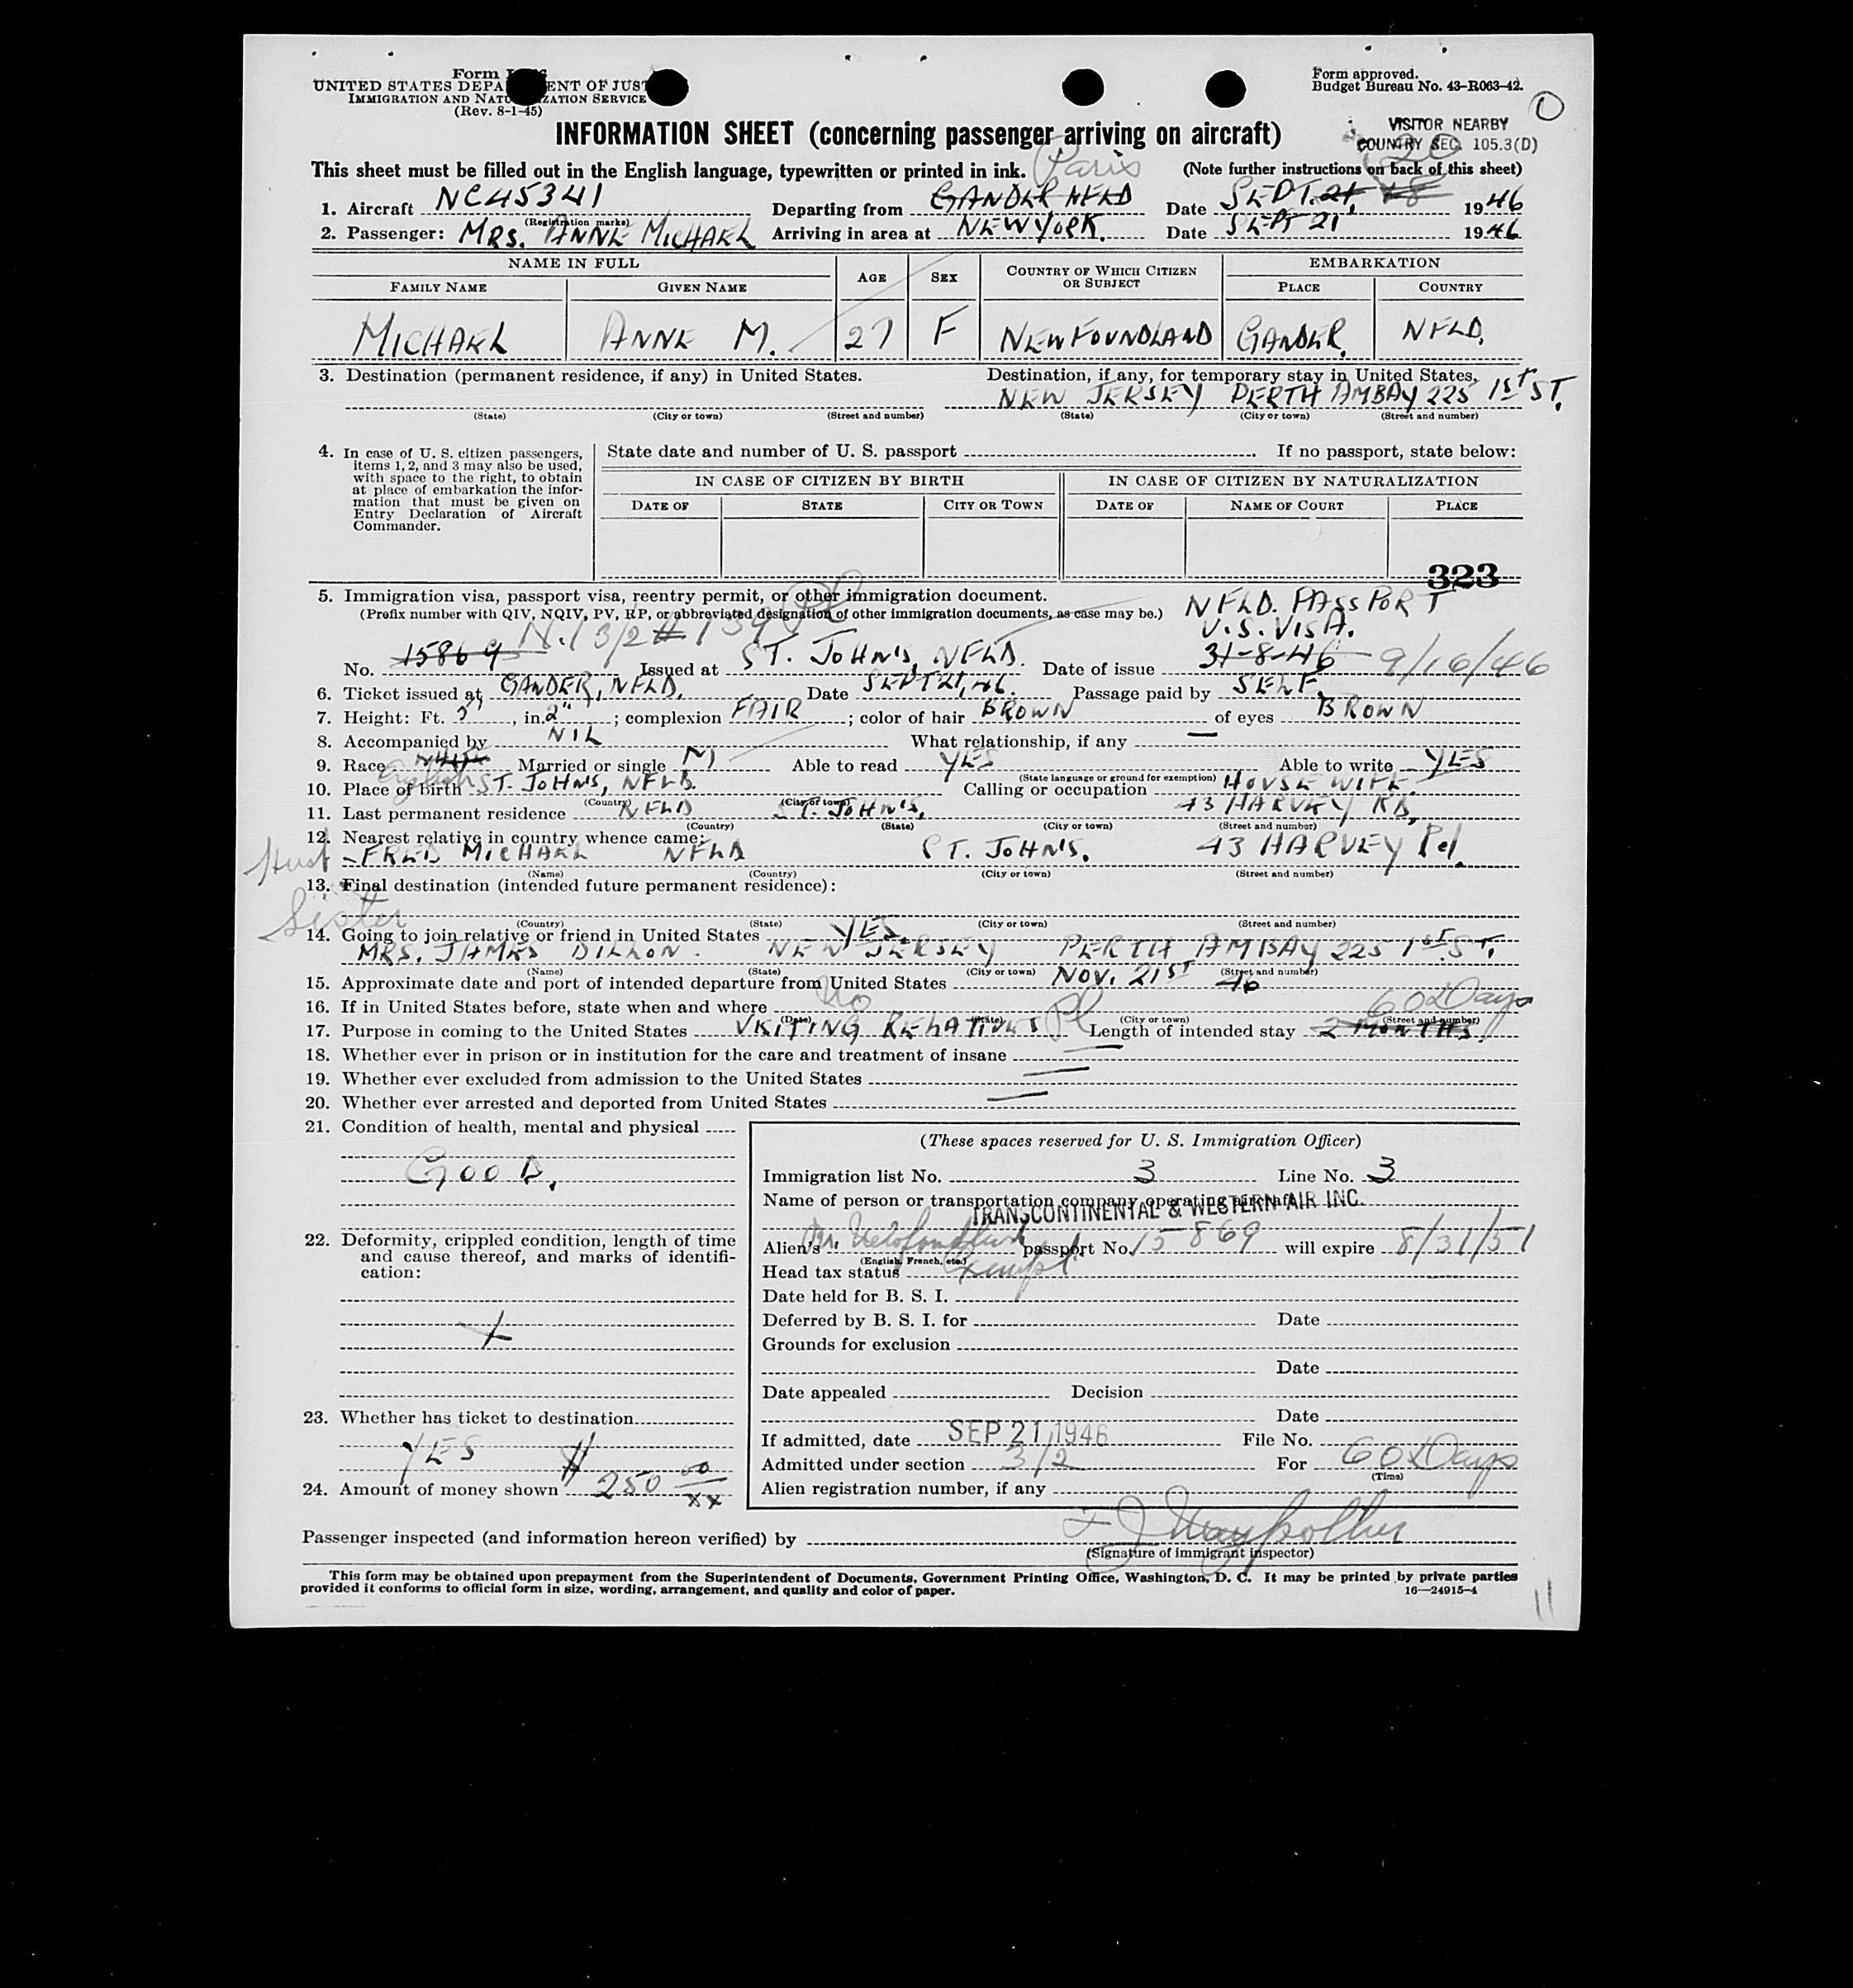 Form I-
UNITED STATES DEPA ENT OF JUST
IMMIGRATION AND NATU IZATION SERVICE
(Rev. 8-1-45)
Form approved.
Budget Bureau No. 43-R063-42.
INFORMATION SHEET (concerning passenger arriving on aircraft)
VISITOR NEARBY
COUNTRY SEC. 105.3(D)
This sheet must be filled out in the English language, typewritten or printed in ink. Paris (Note further instructions on back of this sheet)
20
1. Aircraft NC45341 Departing from GANDER NFLD Date SEPT. 21, 1946
(Registration marks)
2. Passenger: MRS. ANNE MICHAEL Arriving in area at NEW YORK. Date SEPT 21 1946
NAME IN FULL AGE SEX COUNTRY OF WHICH CITIZEN OR SUBJECT EMBARKATION
FAMILY NAME GIVEN NAME PLACE COUNTRY
MICHAEL ANNE M. 27 F NEWFOUNDLAND GANDER. NFLD.
3. Destination (permanent residence, if any) in United States. Destination, if any, for temporary stay in United States.
NEW JERSEY PERTH AMBAY 225 1ST ST.
(State) (City or town) (Street and number) (State) (City or town) (Street and number)
4. In case of U. S. citizen passengers, items 1, 2, and 3 may also be used, with space to the right, to obtain at place of embarkation the information that must be given on Entry Declaration of Aircraft Commander.
State date and number of U. S. passport If no passport, state below:
IN CASE OF CITIZEN BY BIRTH IN CASE OF CITIZEN BY NATURALIZATION
DATE OF STATE CITY OR TOWN DATE OF NAME OF COURT PLACE
323
5. Immigration visa, passport visa, reentry permit, or other immigration document.
(Prefix number with QIV, NQIV, PV, RP, or abbreviated designation of other immigration documents, as case may be.) NFLD. PASSPORT
U.S. VISA.
3/2 # 139
No. 15869 Issued at ST. JOHN'S, NFLD. Date of issue 31-8-46 9/16/46
6. Ticket issued at GANDER, NFLD. Date SEPT 21, 46. Passage paid by SELF.
7. Height: Ft. 5', in. 2"; complexion FAIR; color of hair BROWN of eyes BROWN
8. Accompanied by NIL What relationship, if any —
9. Race WHITE English Married or single M Able to read YES Able to write YES
(State language or ground for exemption)
10. Place of birth ST. JOHNS, NFLD. Calling or occupation HOUSE WIFE.
(Country) (City or town)
11. Last permanent residence NFLD ST. JOHN'S, 43 HARVEY RD,
(Country) (State) (City or town) (Street and number)
12. Nearest relative in country whence came:
Hust FRED MICHAEL NFLD ST. JOHN'S. 43 HARVEY Rd.
(Name) (Country) (City or town) (Street and number)
13. Final destination (intended future permanent residence):
(Country) (State) (City or town) (Street and number)
Sister
14. Going to join relative or friend in United States YES.
MRS. JAMES DILLON. NEW JERSEY PERTH AMBAY 225 1ST ST.
(Name) (State) (City or town) (Street and number)
15. Approximate date and port of intended departure from United States NOV. 21ST 46
16. If in United States before, state when and where No
(Date) (State) (City or town) (Street and number)
60 Days
17. Purpose in coming to the United States VISITING RELATIVES Length of intended stay 2 MONTHS.
18. Whether ever in prison or in institution for the care and treatment of insane —
19. Whether ever excluded from admission to the United States —
20. Whether ever arrested and deported from United States —
21. Condition of health, mental and physical
GOOD.
22. Deformity, crippled condition, length of time and cause thereof, and marks of identification:
X
23. Whether has ticket to destination
YES
24. Amount of money shown $ 250 00/xx
(These spaces reserved for U. S. Immigration Officer)
Immigration list No. 3 Line No. 3
Name of person or transportation company operating aircraft
TRANSCONTINENTAL & WESTERN AIR INC.
Alien's Br. Newfoundland passport No. 15869 will expire 8/31/51
(English, French, etc.)
Head tax status Exempt
Date held for B. S. I.
Deferred by B. S. I. for Date
Grounds for exclusion
Date
Date appealed Decision
Date
If admitted, date SEP 21 1946 File No.
Admitted under section 3/2 For 60 Days
(Time)
Alien registration number, if any
Passenger inspected (and information hereon verified) by
(Signature of immigrant inspector)
This form may be obtained upon prepayment from the Superintendent of Documents, Government Printing Office, Washington, D. C. It may be printed by private parties
provided it conforms to official form in size, wording, arrangement, and quality and color of paper. 16—24915-4
11